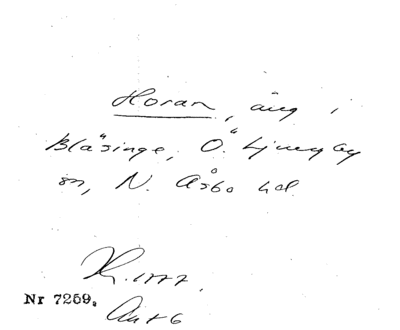 Horan, äng i
Blåsinge, Ö. Ljungby
sn, N. Åsbo hd.
K. 1777.
Nr 7259.